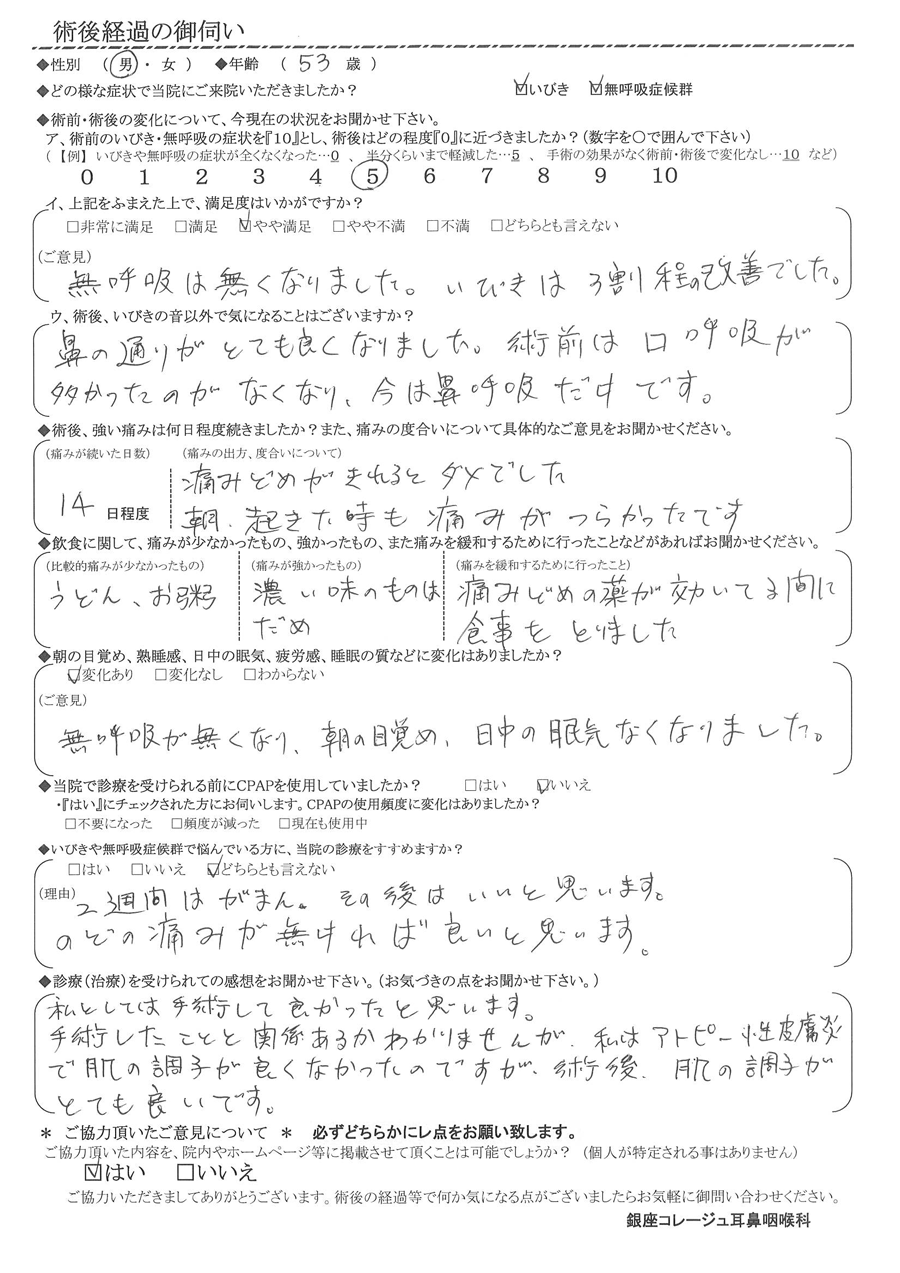 術後経過の御伺い
◆性別 ( 男 ・ 女 ) ◆年齢 ( 53 歳 )
◆どの様な症状で当院にご来院いただきましたか? ☑いびき ☑無呼吸症候群
◆術前・術後の変化について、今現在の状況をお聞かせ下さい。
ア、術前のいびき・無呼吸の症状を『10』とし、術後はどの程度『0』に近づきましたか?(数字を○で囲んで下さい)
(【例】 いびきや無呼吸の症状が全くなくなった…0 、 半分くらいまで軽減した…5 、 手術の効果がなく術前・術後で変化なし…10 など)
0 1 2 3 4 5 6 7 8 9 10
イ、上記をふまえた上で、満足度はいかがですか?
□非常に満足 □満足 ☑やや満足 □やや不満 □不満 □どちらとも言えない
(ご意見)
無呼吸は無くなりました。いびきは3割程の改善でした。
ウ、術後、いびきの音以外で気になることはございますか?
鼻の通りがとても良くなりました。術前は口呼吸が
多かったのがなくなり、今は鼻呼吸だけです。
◆術後、強い痛みは何日程度続きましたか?また、痛みの度合いについて具体的なご意見をお聞かせください。
(痛みが続いた日数) (痛みの出方、度合いについて)
痛みどめがきれるとダメでした
14 日程度 朝、起きた時も痛みがつらかったです
◆飲食に関して、痛みが少なかったもの、強かったもの、また痛みを緩和するために行ったことなどがあればお聞かせください。
(比較的痛みが少なかったもの) (痛みが強かったもの) (痛みを緩和するために行ったこと)
うどん、お粥 濃い味のものは 痛みどめの薬が効いてる間に
だめ 食事をとりました
◆朝の目覚め、熟睡感、日中の眠気、疲労感、睡眠の質などに変化はありましたか?
☑変化あり □変化なし □わからない
(ご意見)
無呼吸が無くなり、朝の目覚め、日中の眠気なくなりました。
◆当院で診療を受けられる前にCPAPを使用していましたか? □はい ☑いいえ
・『はい』にチェックされた方にお伺いします。CPAPの使用頻度に変化はありましたか?
□不要になった □頻度が減った □現在も使用中
◆いびきや無呼吸症候群で悩んでいる方に、当院の診療をすすめますか?
□はい □いいえ ☑どちらとも言えない
(理由) 2週間はがまん。その後はいいと思います。
のどの痛みが無ければ良いと思います。
◆診療(治療)を受けられての感想をお聞かせ下さい。(お気づきの点をお聞かせ下さい。)
私としては手術して良かったと思います。
手術したことと関係あるかわかりませんが、私はアトピー性皮膚炎
で肌の調子が良くなかったのですが、術後、肌の調子が
とても良いです。
＊ ご協力頂いたご意見について ＊ 必ずどちらかにレ点をお願い致します。
ご協力頂いた内容を、院内やホームページ等に掲載させて頂くことは可能でしょうか? (個人が特定される事はありません)
☑はい □いいえ
ご協力いただきましてありがとうございます。術後の経過等で何か気になる点がございましたらお気軽に御問い合わせください。
銀座コレージュ耳鼻咽喉科